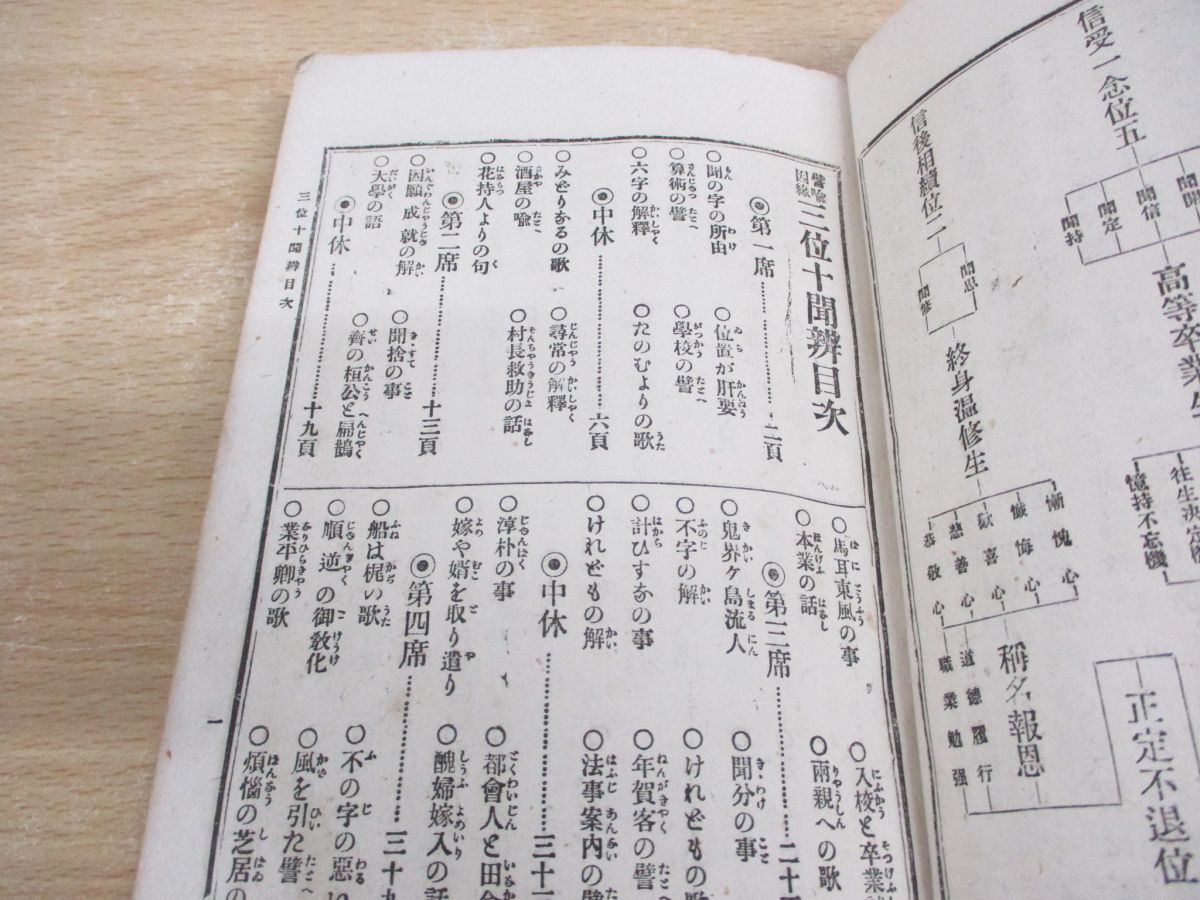 信受一念位五
聞信
聞定
聞持
高等卒業
往生決定
憶持不忘機
正定不退位
信後相續位二
聞思
聞修
終身温修生
慚愧心
懺悔心
歡喜心
慈善心
恭敬心
稱名報恩
道德履行
職業勉强
譬喩因緣 三位十聞辨目次
◉第一席……二頁
○聞の字の所由 ○位置が肝要
○算術の譬 ○學校の譬
○六字の解釋 ○たのむよりの歌
◉中休……六頁
○みどりなるの歌 ○尋常の解釋
○酒屋の喩 ○村長救助の話
○花持人よりの句
◉第二席……十三頁
○因願成就の解 ○聞捨の事
○大學の語 ○齊の桓公と扁鵲
◉中休……十九頁
○馬耳東風の事 ○入校と卒業
○本業の話 ○兩親への歌
◉第三席……二十
○鬼界ヶ島流人 ○聞分の事
○不字の解 ○けれどもの歌
○計ひすなの事 ○年賀客の譬
○けれどもの解 ○法事案内の譬
◉中休……三十
○淳朴の事 ○都會人と田舍
○嫁や婿を取り遣り ○醜婦嫁入の話
◉第四席……三十九
○船は梶い歌 ○不の字の惡い
○順逆の御敎化 ○風を引た譬
○業平卿の歌 ○煩惱の芝居の
三位十聞辨目次
一